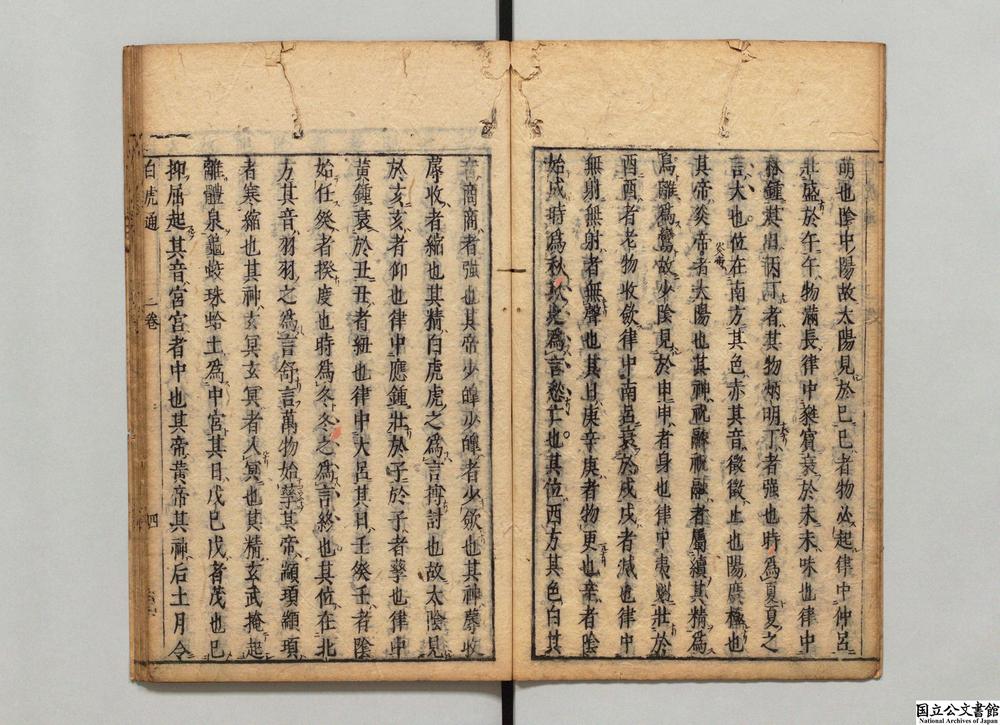 萌也陰中陽故太陽見於巳巳者物必起律中仲呂
壯盛於午午物滿長律中蕤賓衰於未未味也律中
林鍾其日丙丁者其物炳明丁者強也時爲夏夏之
言大也位在南方其色赤其音徵徵止也陽度極也
其帝炎帝者太陽也其神祝融祝融者屬續其精爲
鳥離爲鸞故少陰見於申申者身也律中夷則壯於
酉酉者老物收斂律中南呂衰於戌戌者滅也律中
無射無射者無聲也其日庚辛庚者物更也辛者陰
始成時爲秋秋之爲言愁亡也其位西方其色白其
音商商者強也其帝少皞少皞者少歛也其神蓐收
蓐收者縮也其精白虎虎之爲言搏討也故太陰見
於亥亥者仰也律中應鍾壯於子於子者孳也律中
黃鍾衰於丑丑者紐也律中大呂其日壬癸壬者陰
始任癸者揆度也時爲冬冬之爲言終也其位在北
方其音羽羽之爲言舒言萬物始孳其帝顓頊顓頊
者寒縮也其神玄冥玄冥者入冥也其精玄武掩起
離體泉龜蛟珠蛤土爲中宮其日戊己戊者茂也己
抑屈起其音宮宮者中也其帝黃帝其神后土月令
白虎通 二卷 四
国立公文書館
National Archives of Japan